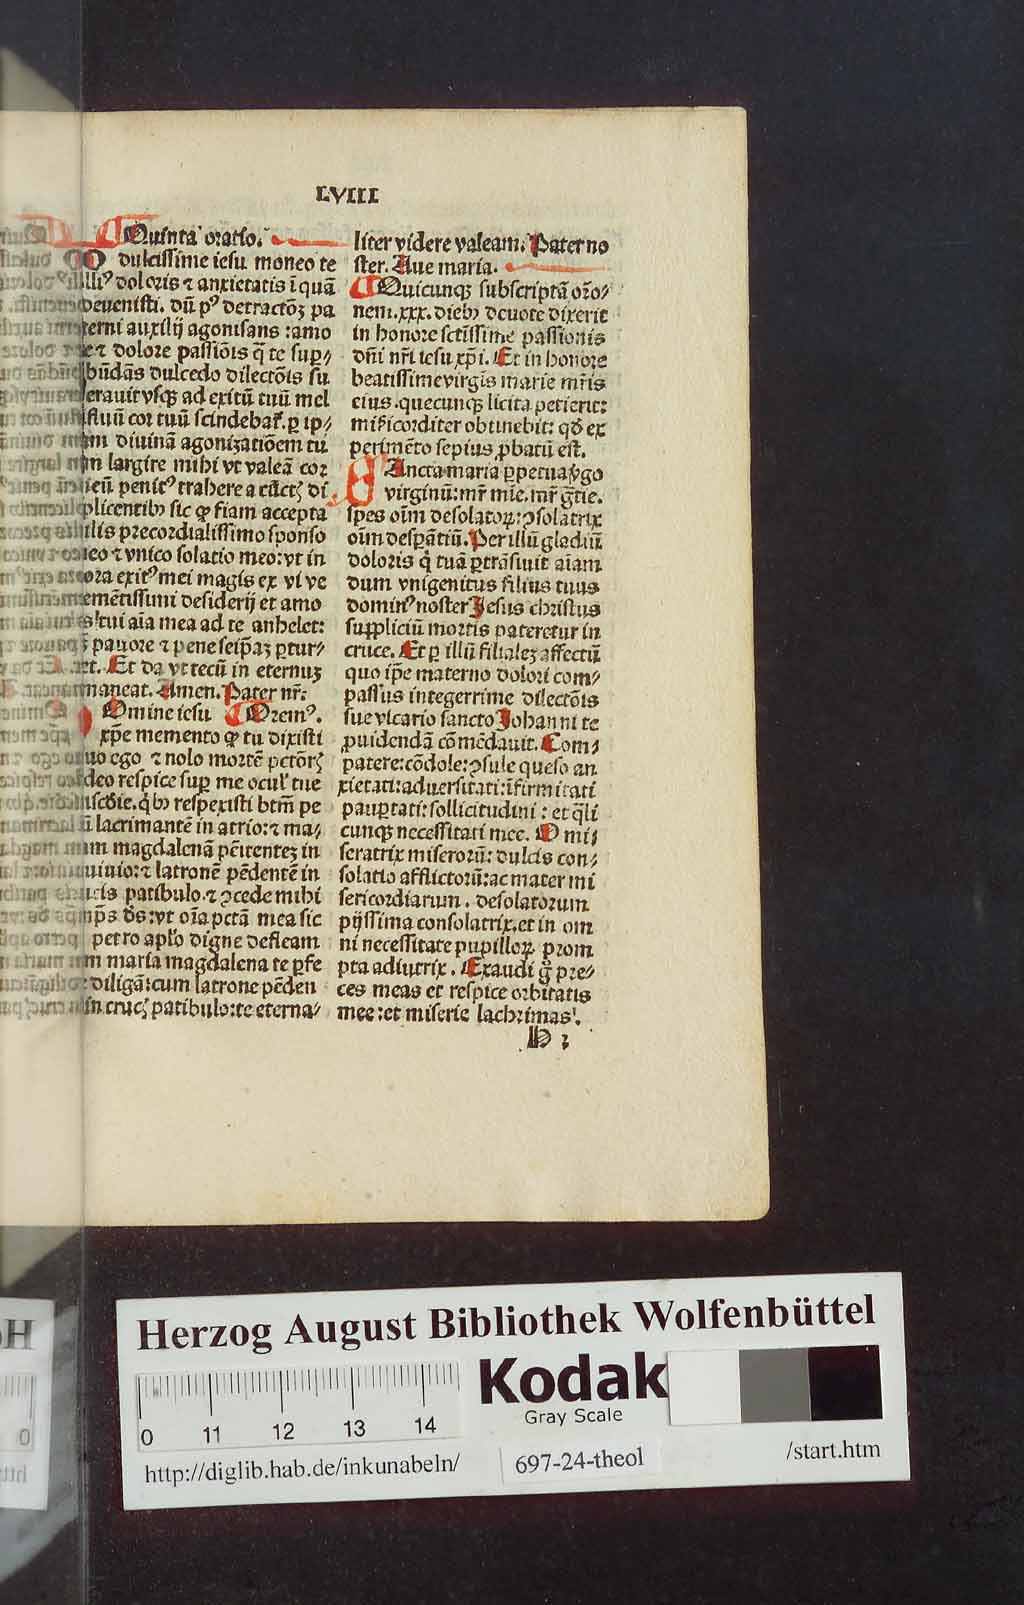 LVIII
Quinta oratio.
O dulcissime iesu moneo te
illi⁹ doloris ⁊ anxietatis ī quā
deuenisti. dū p⁹ detractōꝫ pa
terni auxilij agonisans : amo
re ⁊ dolore passiōis q̄ te sup⸗
būdās dulcedo dilectōis su
erauit vsqꝫ ad exitū tuū mel
fluū cor tuū scindebat̄. ꝑ ip⸗
m diuinā agonizatiōem tu
m largire mihi vt valeā cor
eū penit⁹ trahere a cūctꝭ di
plicentibꝰ sic ꝙ fiam accepta
ilis precordialissimo sponso
eo ⁊ vnico solatio meo: vt in
ora exit⁹ mei magis ex vi ve
emētissimi desiderij et amo
s tui aīa mea ad te anhelet:
pauore ⁊ pene seip̄aꝫ ꝑtur⸗
et. Et da vt tecū in eternuꝫ
maneat. Amen. Pater nr̄:
Domine iesu Orem⁹.
xp̄e memento ꝙ tu dixisti
uo ego ⁊ nolo mortē pctōrꝭ
deo respice sup me ocul' tue
respexisti btm̄ pe
ū lacrimantē in atrio: ⁊ ma⸗
m magdalenā pēitenteꝫ in
uiuio: ⁊ latronē pēdentē in
cis patibulo. ⁊ ꝯcede mihi
np̄s d̄s: vt oīa pctā mea sic
petro apl'o digne defleam
m maria magdalena te ꝑfe
diligā: cum latrone pēden
in crucꝭ patibulo: te eterna⸗
liter videre valeam. Pater no
ster. Aue maria.
Quicunqꝫ subscriptā oro̅⸗
nem .xxx. diebꝰ deuote dixerit
in honore sctīssime passionis
dn̄i nr̄i iesu xp̄i. Et in honore
beatissime virgīs marie mr̄is
eius. quecunqꝫ licita petierit:
misericorditer obtinebit: qd̄ ex
perimēto sepius ꝓbatū est.
Sancta maria ꝑpetua v̄go
virginū: mr̄ mīe. mr̄ gr̄tie.
spes oīm desolatoꝝ: ꝯsolatrix
oīm despātiū. Per illū gladiū
doloris q̇ tuā ꝑtrāsiuit aīam
dum vnigenitus filius tuus
domin⁹ noster Jesus christus
suppliciū mortis pateretur in
cruce. Et ꝑ illū filialeꝫ affectū
quo ip̄e materno dolori com⸗
passus integerrime dilectōis
sue vicario sancto Johanni te
ꝓuidendā cōmēdauit. Com⸗
patere: cōdole: ꝯsule queso an
xietati: aduersitati: īfirmitati
pauꝑtati: sollicitudini : et q̄li
cunqꝫ necessitati mee. O mi⸗
seratrix miserorū: dulcis con⸗
solatio afflictorū: ac mater mi
sericordiarum. desolatorum
pijssima consolatrix. et in om
ni necessitate pupilloꝝ prom
pta adiutrix. Exaudi g̊ pre⸗
ces meas et respice orbitatis
mee: et miserie lachrimas.
Herzog August Bibliothek Wolfenbüttel
Kodak
Gray Scale
0 11 12 13 14
http://diglib.hab.de/inkunabeln/
697-24-theol
/start.htm